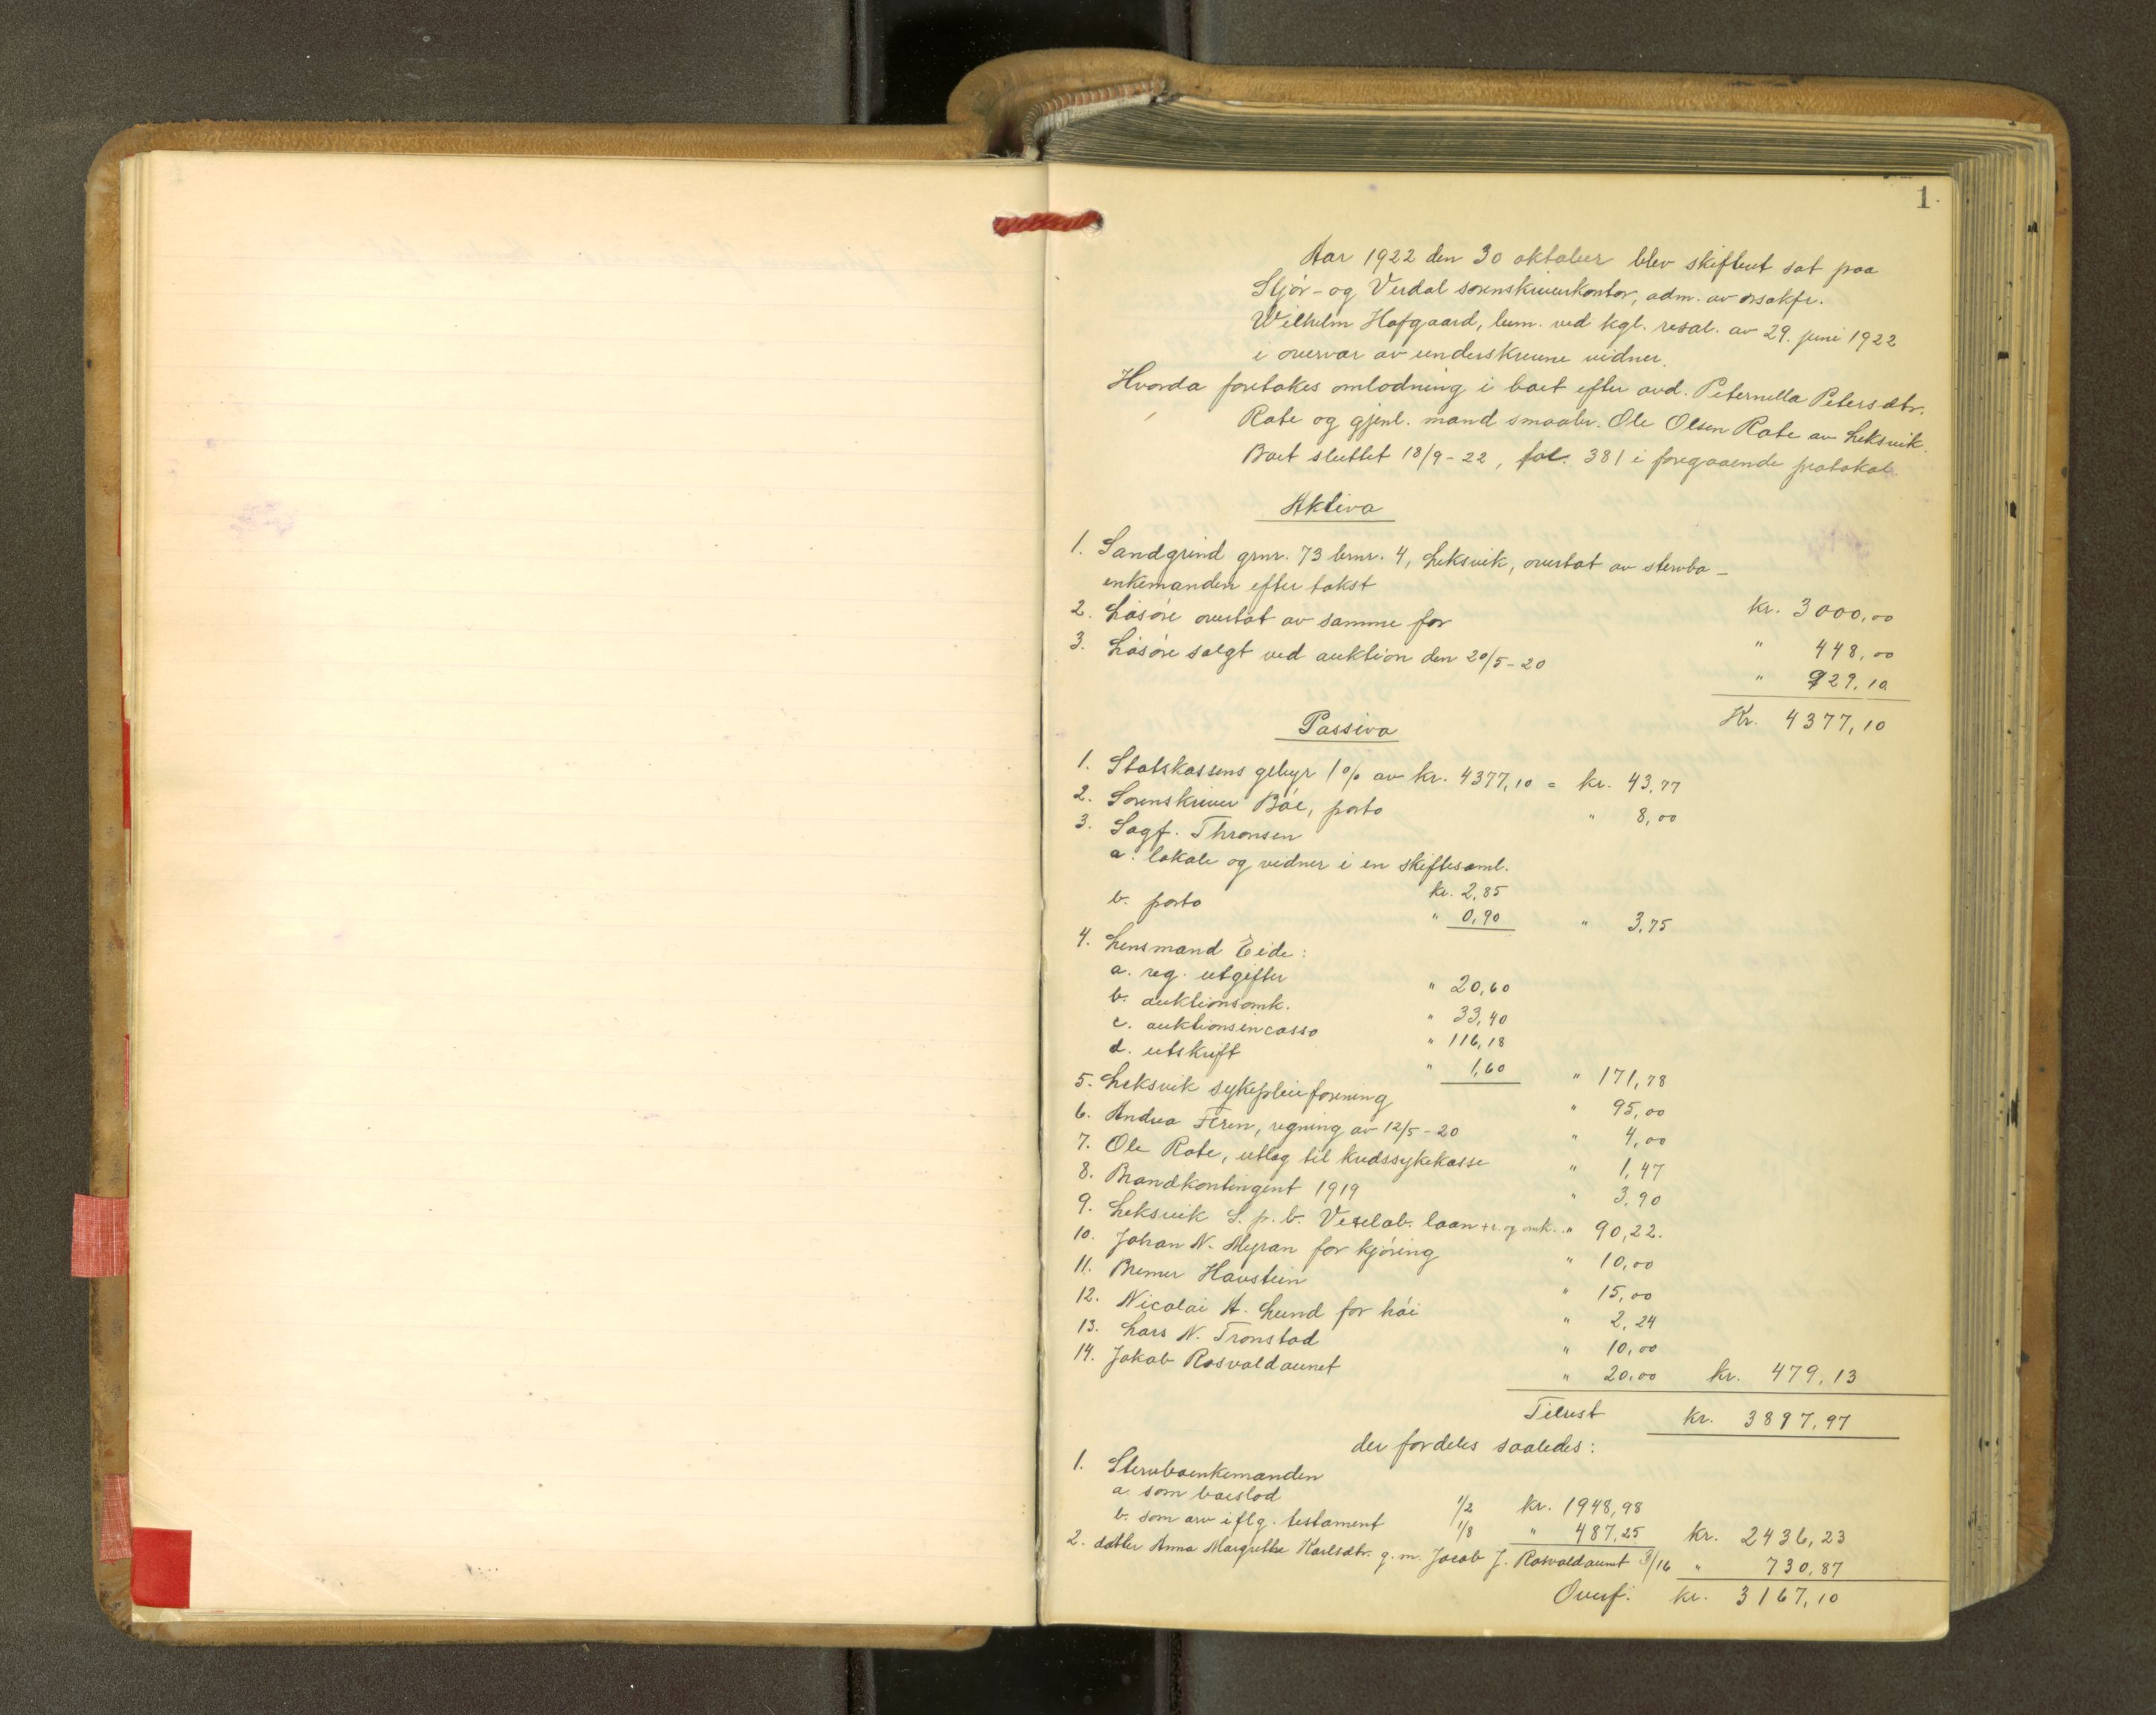 1.
Aar 1922 den 30 oktober blev skifteret sat paa
Stjör- og Verdal sorenskriverkontor, adm. av orsakfr.
Wilhelm Hofgaard, bem. ved kgl. resol. av 29. juni 1922
i overvær av underskrevne vidner.
Hvorda foretokes omlodning i boet efter avd. Peternella Petersdtr.
Rote og gjenl. mand smaabr. Ole Olsen Rote av Leksvik.
Boet sluttet 18/9-22, fol. 381 i foregaaende protokol.
Aktiva
1. Sandgrind grnr. 73 brnr. 4, Leksvik, overtat av stervbo-
enkemanden efter takst kr. 3000,00
2. Lösöre overtat av samme for " 448,00
3. Lösöre solgt ved auktion den 20/5-20 " 929,10
Kr. 4377,10
Passiva
1. Statskassens gebyr 1% av kr. 4377,10 = kr. 43,77
2. Sorenskriver Böe, porto " 8,00
3. Sagf. Thronsen
a. lokale og vidner i en skiftesaml. kr. 2,85
b. porto " 0,90 " 3,75
4. Lensmand Eide:
a. reg. utgifter " 20,60
b. auktionsomk. " 33,40
c. auktionsincasso " 116,18
d. utskrift " 1,60 " 171,78
5. Leksvik sykepleieforening " 95,00
6. Andrea Feren, regning av 12/5-20 " 4,00
7. Ole Rote, utlæg til kredssykekasse " 1,47
8. Brandkontingent 1919 " 3,90
9. Leksvik S.p.b. Vexelob. laan + r. og omk. " 90,22.
10. Johan N. Myran for kjöring " 10,00
11. Bremer Haustein " 15,00
12. Nicolai A. Lund for höi " 2,24
13. Lars N. Tronstad " 10,00
14. Jakob Rosvoldaunet " 20,00 kr. 479,13
Tilrest kr. 3897,97
der fordeles saaledes:
1. Stervboenkemanden
a. som boeslod 1/2 kr. 1948,98
b. som arv iflg. testament 1/8 " 487,25 kr. 2436,23
2. datter Anna Margrethe Karlsdtr. g.m. Jacob J. Rosvoldaunet 3/16 " 730,87
Overf. kr. 3167,10